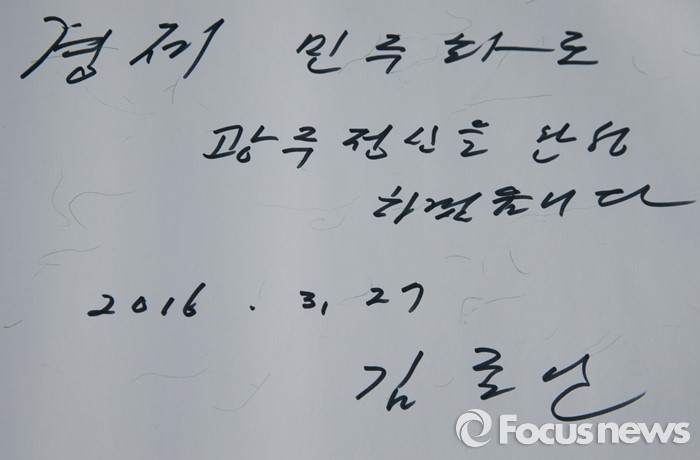 경제 민주화로
광주정신을 완성
하겠읍니다
2016. 3. 27
김종인
Focusnews